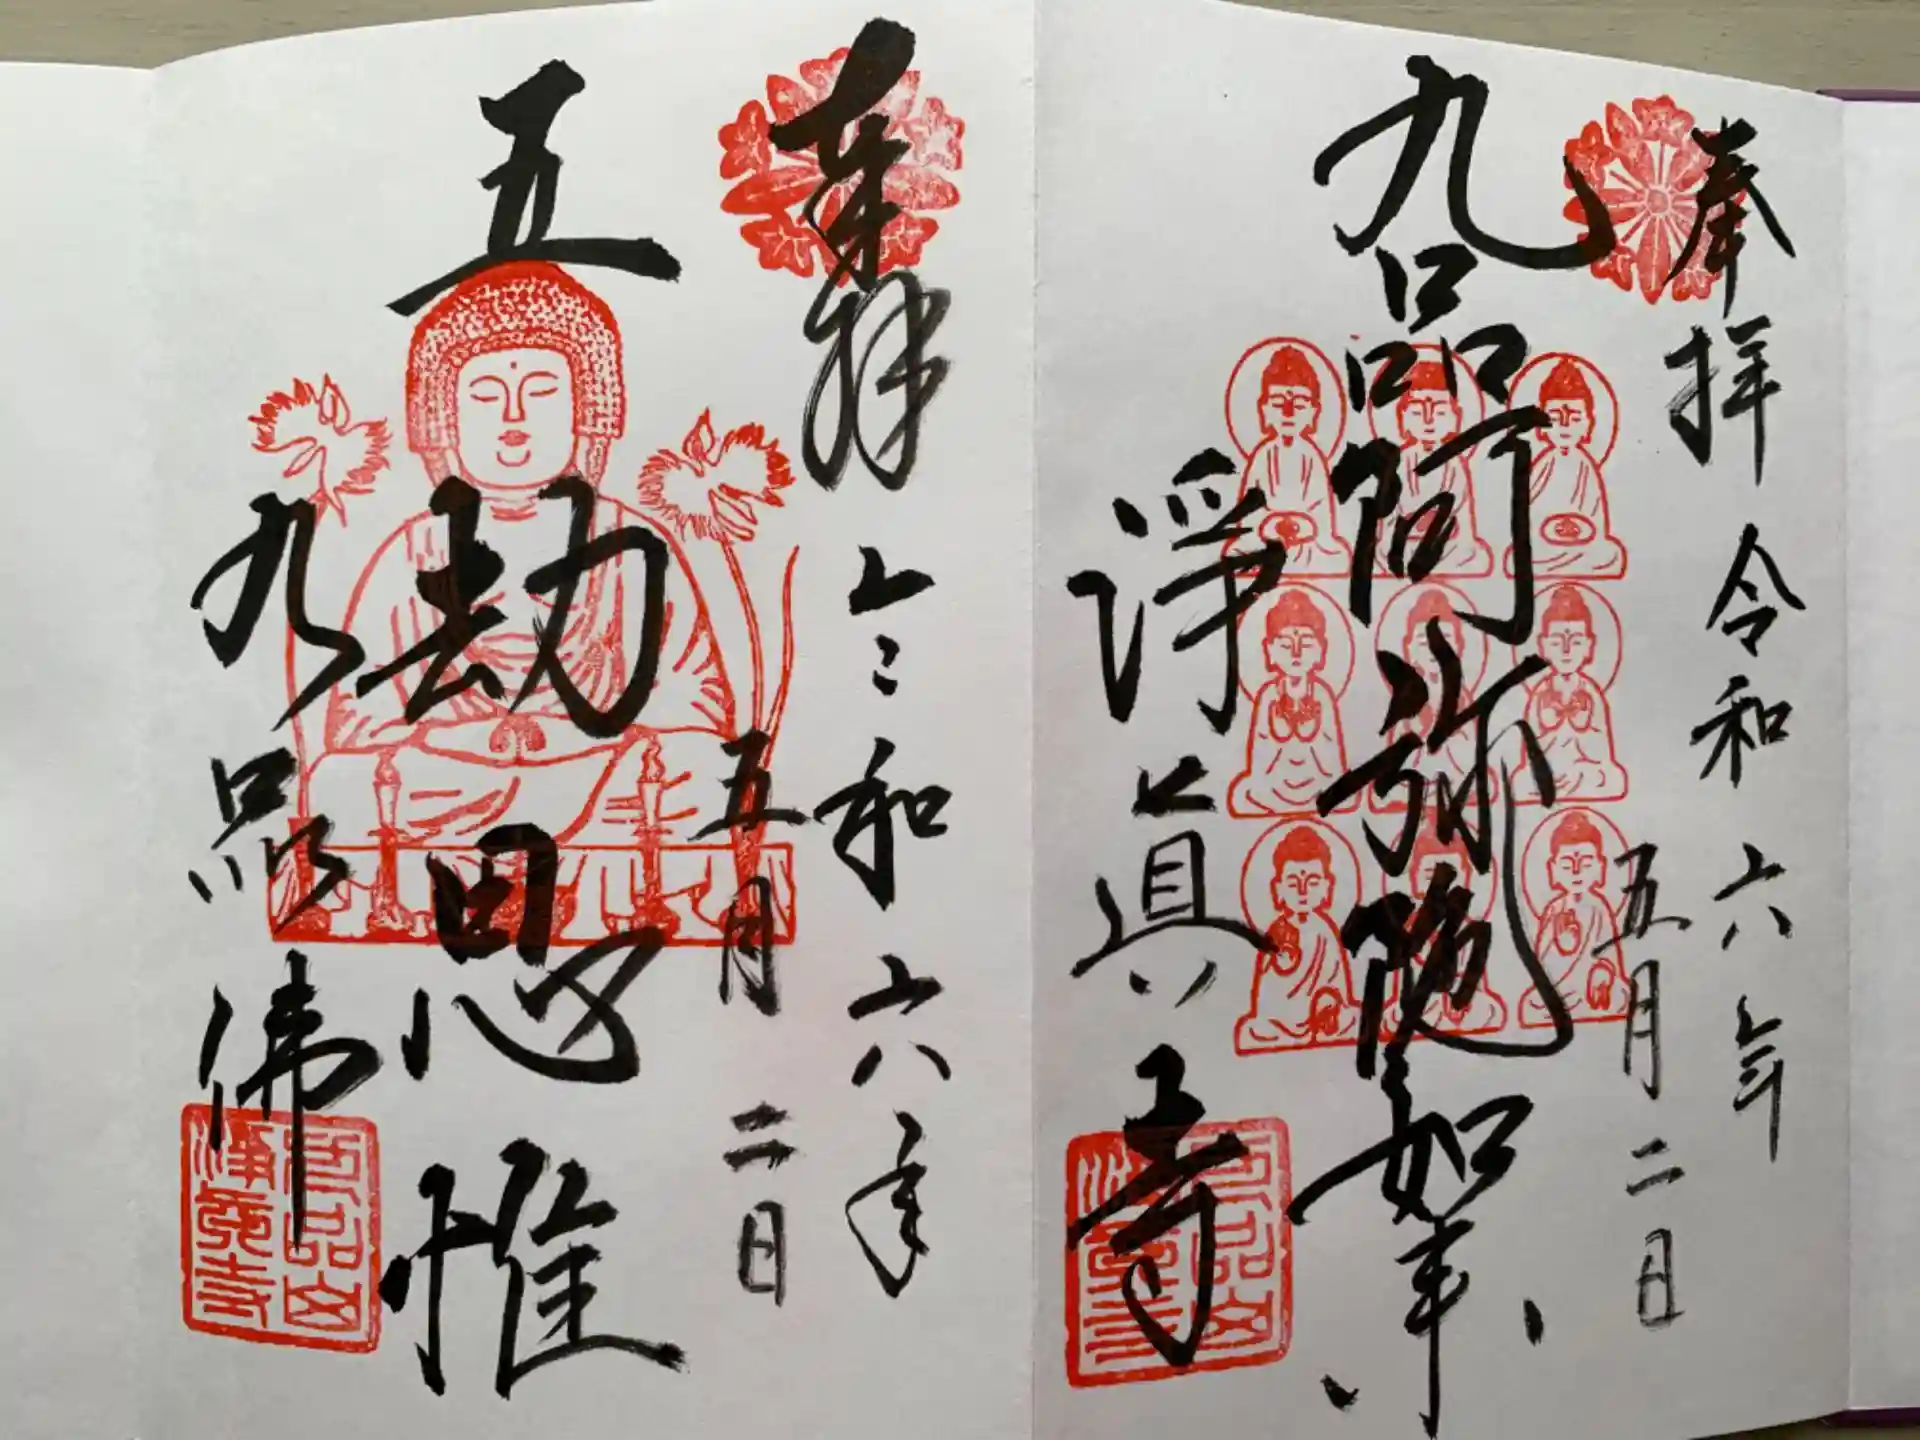 奉拝 令和六年
五月二日
九品阿弥陀如来
浄真寺
奉拝 令和六年
五月二日
五劫思惟
九品佛
九品山
浄真寺